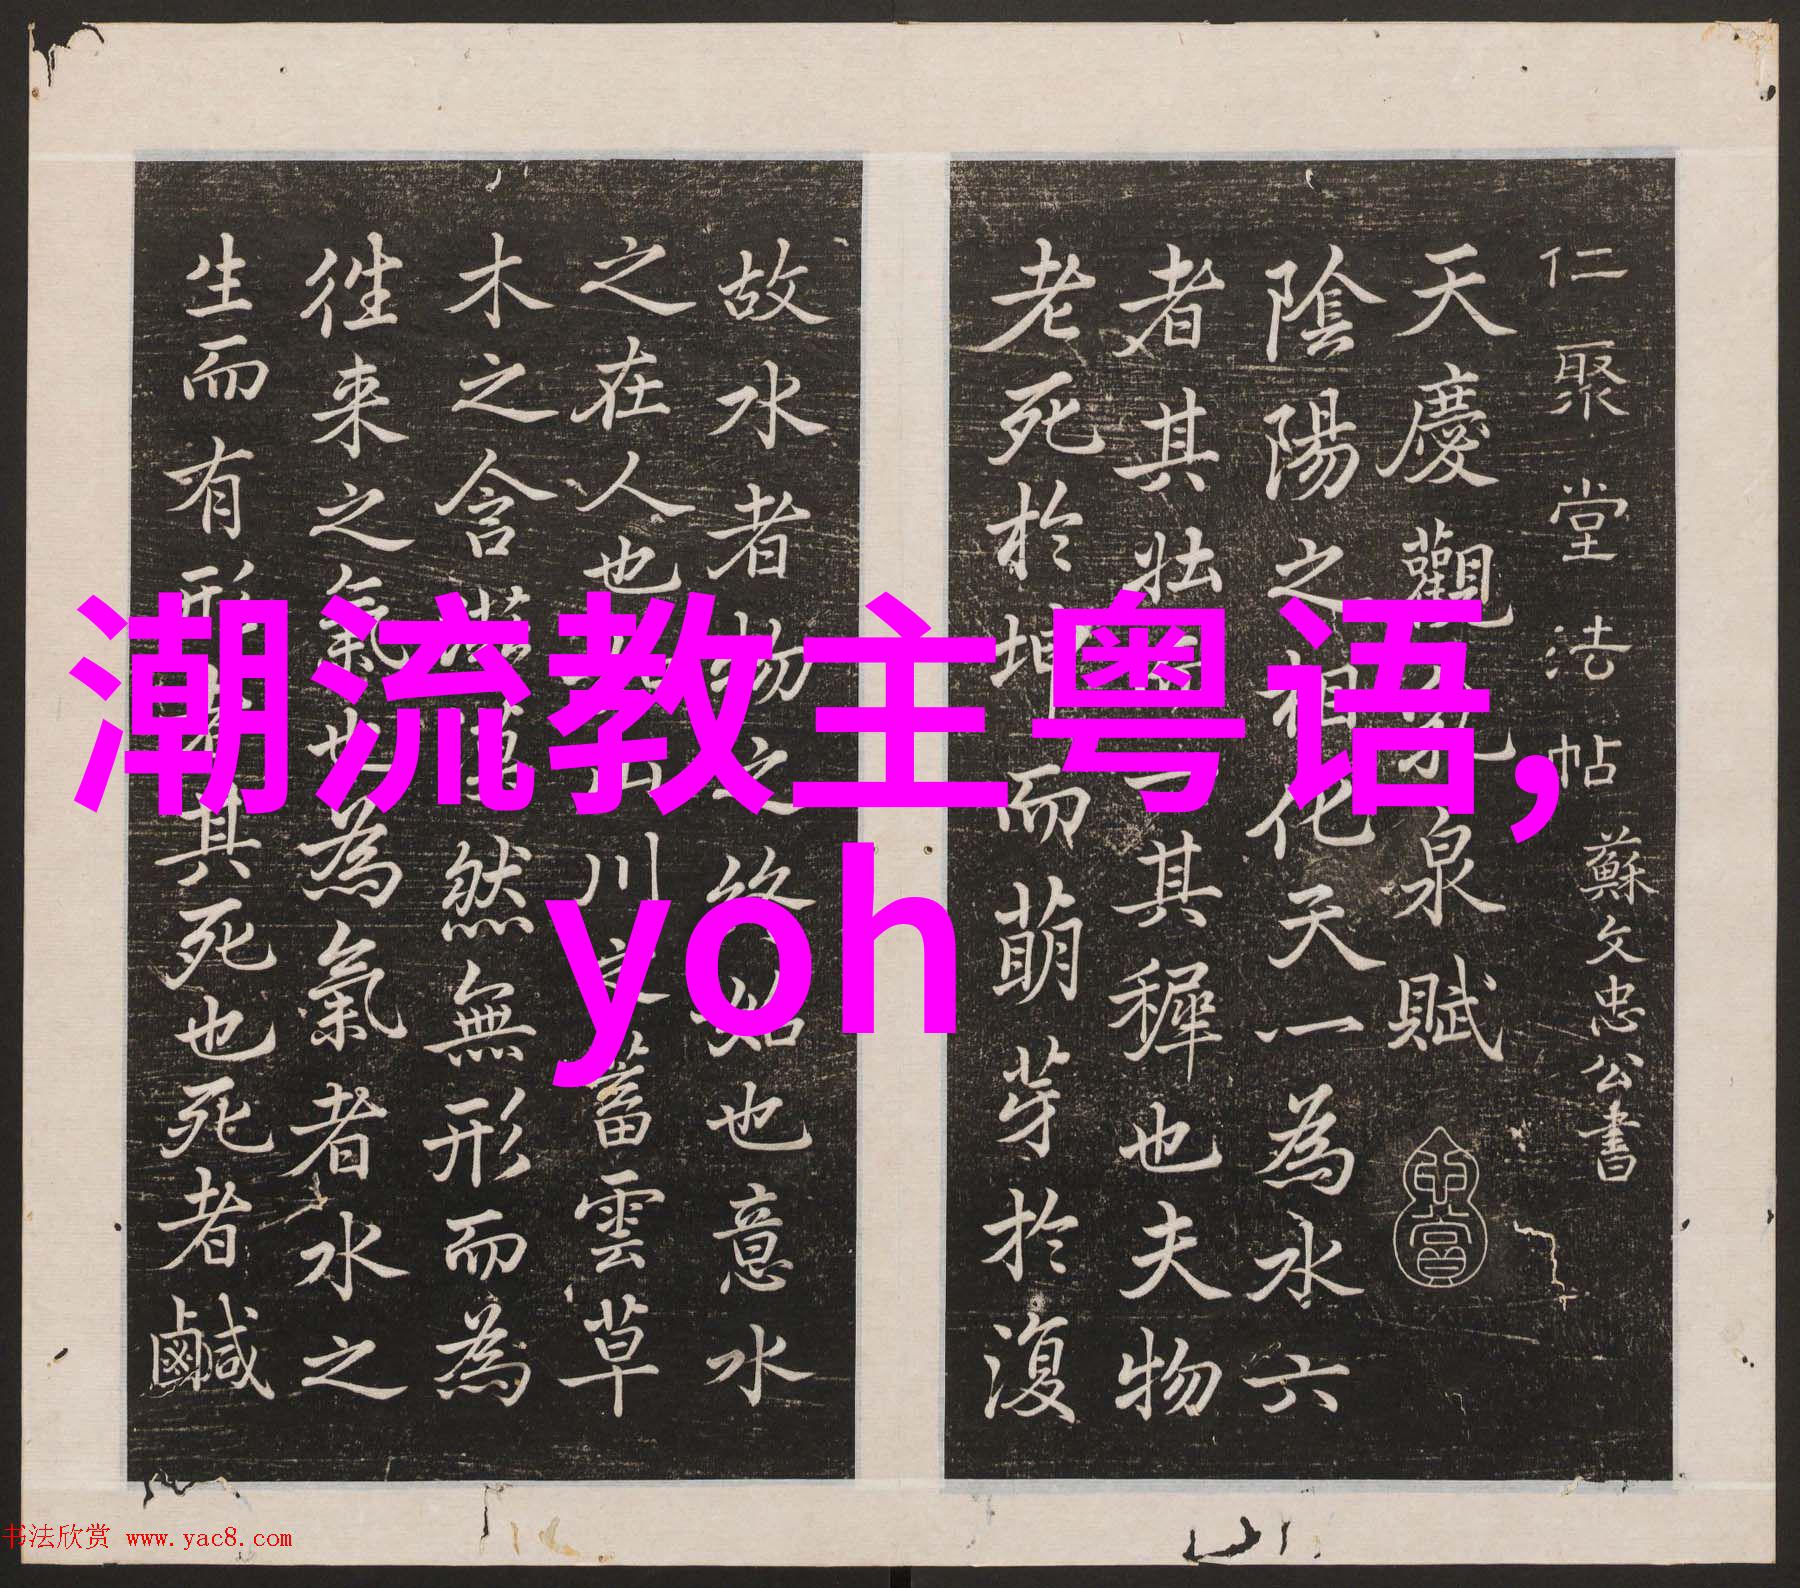 仁聚堂法帖 蘇文忠公書
天慶觀乳泉賦
陰陽之相化天一為水六
者其壯而一其穉也夫物
老死於坤而萌芽於復
故水者物之終始也意水
之在人也山川之蓄雲草
木之含滋漠然無形而為
往来之氣也為氣者水之
生而有形其死也死者鹹
潮流教主粤语,
yoh
书法欣赏 www.yac8.com